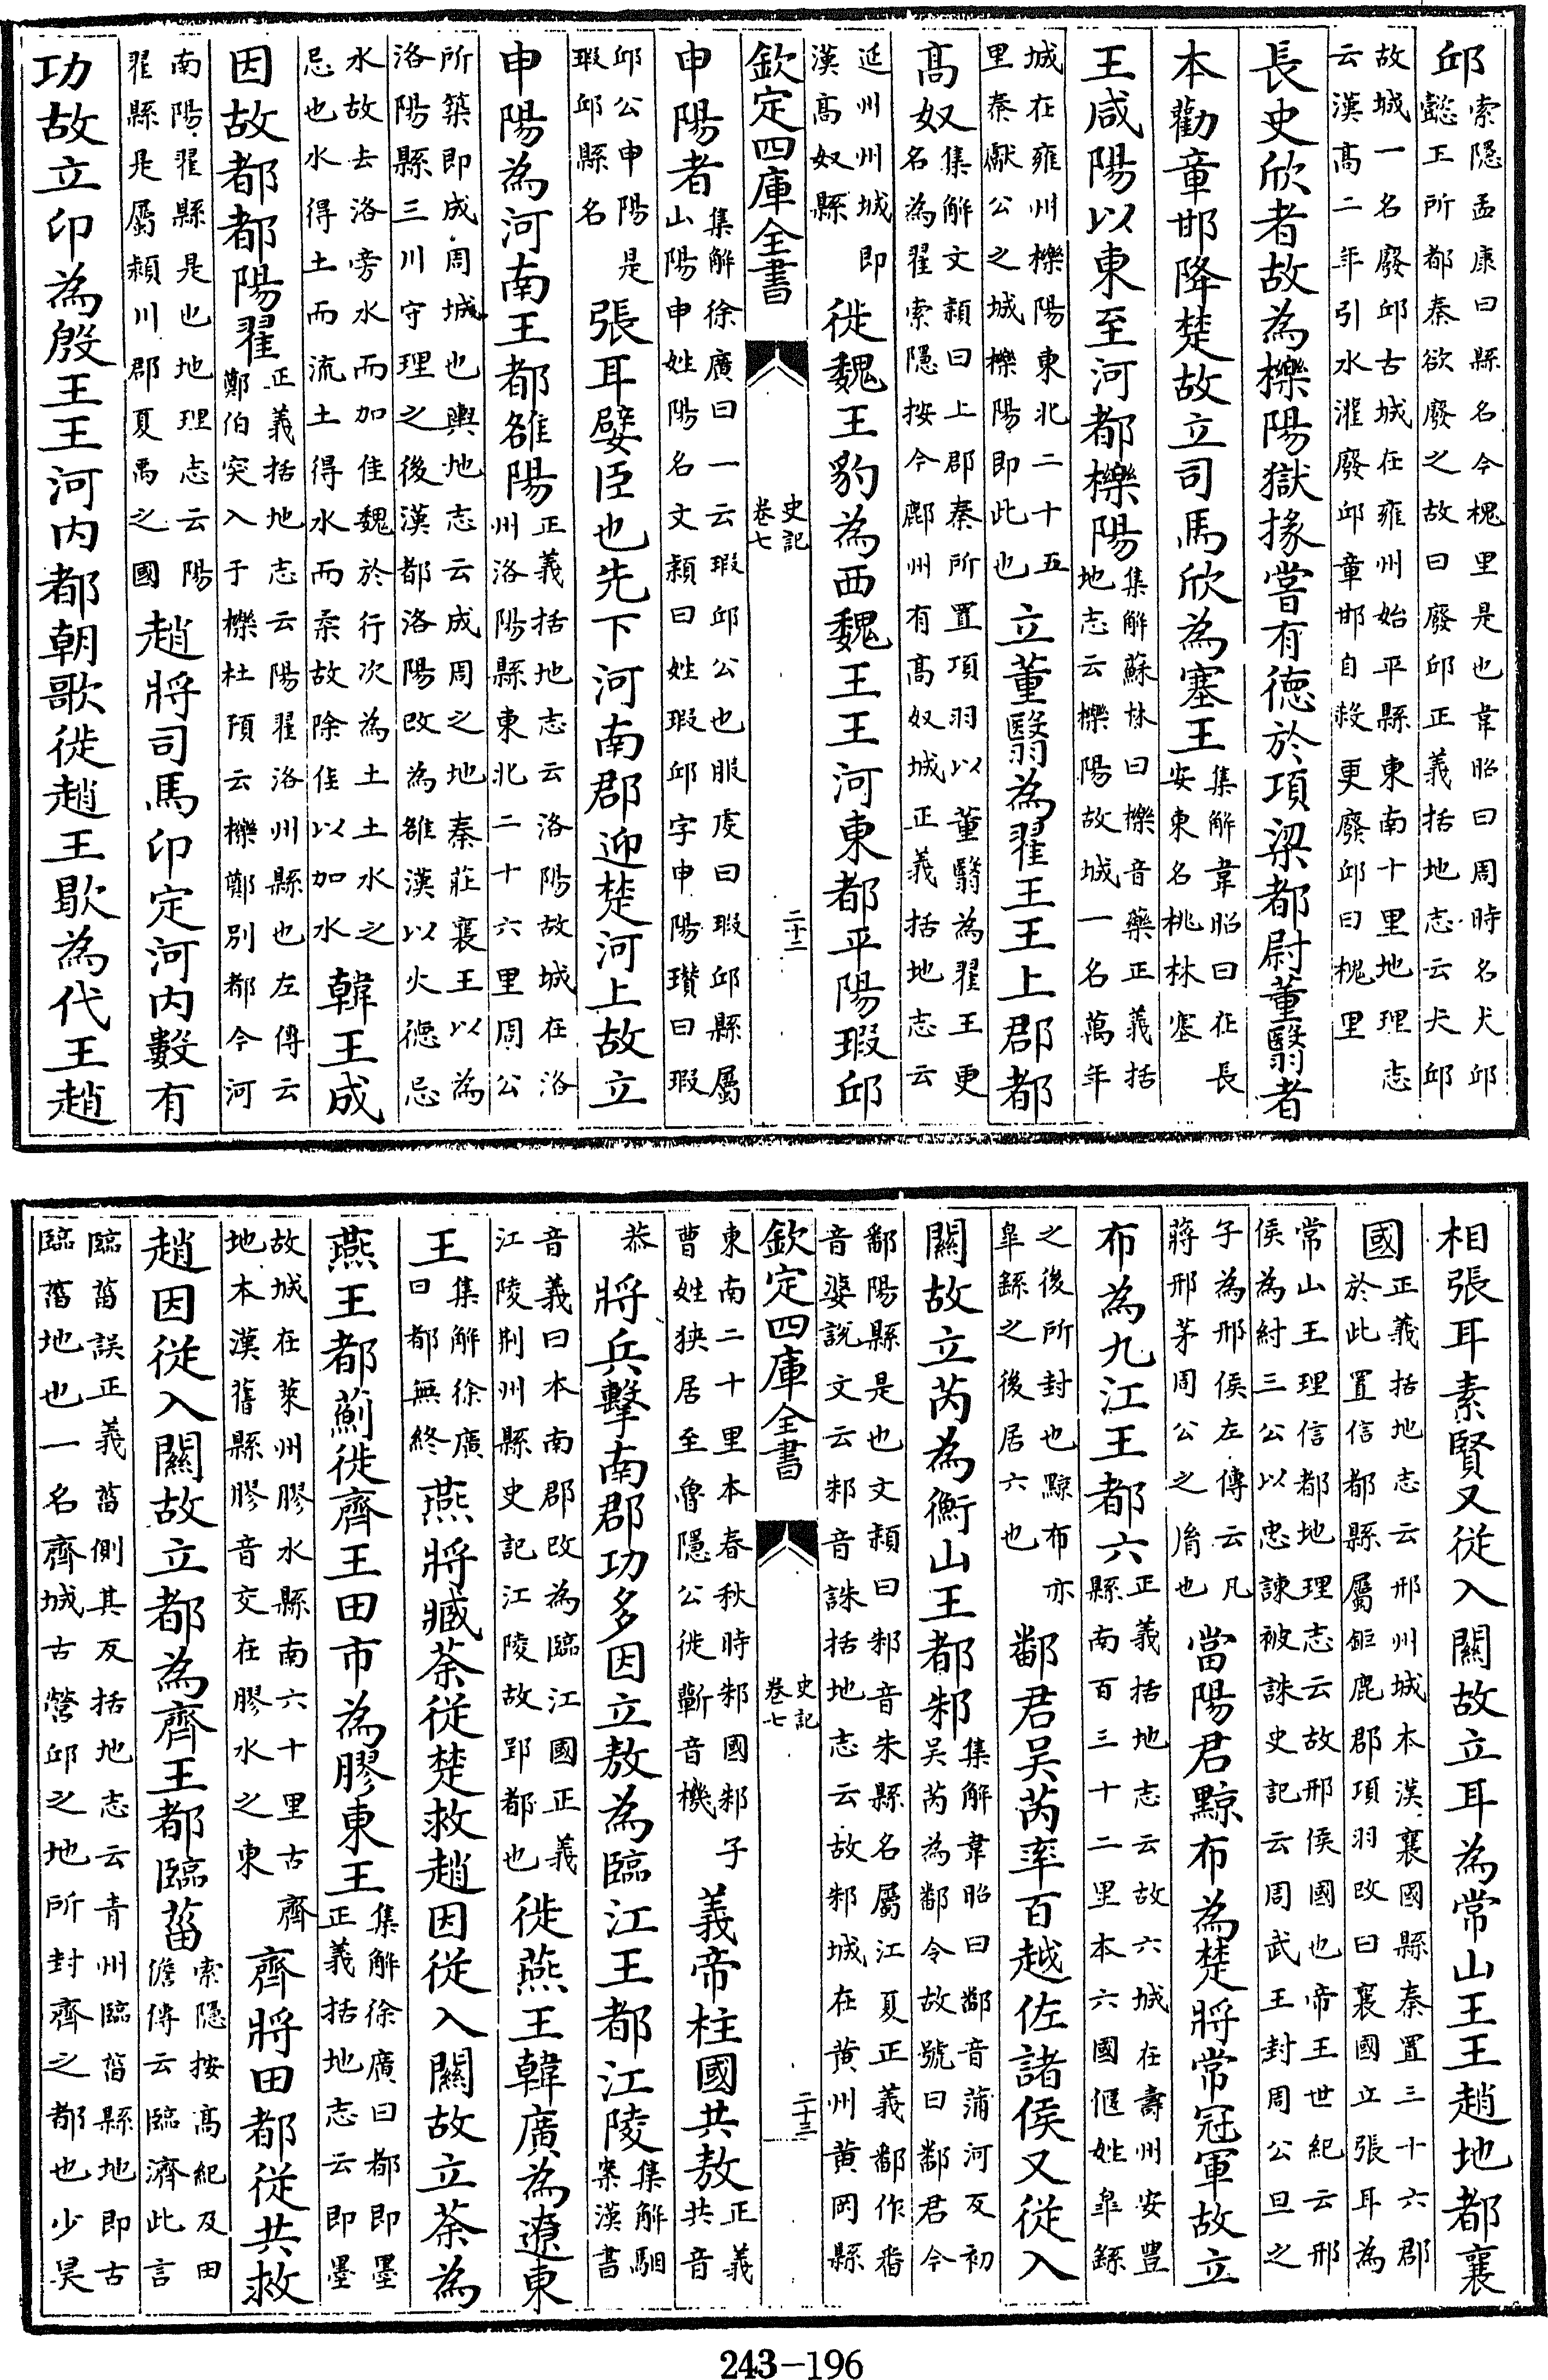 邱索隱孟康曰縣名今槐里是也韋昭曰周時名犬邱
懿王所都秦欲廢之故曰廢邱正義括地志云犬邱
故城一名廢邱古城在雍州始平縣東南十里地理志
云漢高二年引水灌廢邱章邯自殺更廢邱曰槐里
長史欣者故為櫟陽獄掾嘗有德於項梁都尉董翳者
本勸章邯降楚故立司馬欣為塞王集解韋昭曰在長
安東名桃林塞
王咸陽以東至河都櫟陽集解蘇林曰櫟音藥正義括
地志云櫟陽故城一名萬年
城在雍州櫟陽東北二十五
里秦獻公之城櫟陽即此也立董翳為翟王王上郡都
高奴集解文頴曰上郡秦所置項羽以董翳為翟王更
名為翟索隱按今鄜州有高奴城正義括地志云
延州州城即
漢高奴縣徙魏王豹為西魏王王河東都平陽瑕邱
欽定四庫全書
史記
卷七
二十二
申陽者集解徐廣曰一云瑕邱公也服䖍曰瑕邱縣屬
山陽申姓陽名文頴曰姓瑕邱字申陽瓚曰瑕
邱公申陽是
瑕邱縣名張耳嬖臣也先下河南郡迎楚河上故立
申陽為河南王都雒陽正義括地志云洛陽故城在洛
州洛陽縣東北二十六里周公
所築即成周城也輿地志云成周之地秦莊襄王以為
洛陽縣三川守理之後漢都洛陽改為雒漢以火德忌
水故去洛旁水而加佳魏於行次為土土水之
忌也水得土而流土得水而柔故除佳以加水韓王成
因故都都陽翟正義括地志云陽翟洛州縣也左傳云
鄭伯突入于櫟杜預云櫟鄭別都今河
南陽翟縣是也地理志云陽
翟縣是屬頴川郡夏禹之國趙將司馬卬定河内數有
功故立卬為殷王王河内都朝歌徙趙王歇為代王趙
相張耳素賢又從入關故立耳為常山王王趙地都襄
國正義括地志云邢州城本漢襄國縣秦置三十六郡
於此置信都縣屬鉅鹿郡項羽改曰襄國立張耳為
常山王理信都地理志云故邢侯國也帝王世紀云邢
侯為紂三公以忠諫被誅史記云周武王封周公旦之
子為邢侯左傳云凡
蔣邢茅周公之胤也當陽君黥布為楚將常冠軍故立
布為九江王都六正義括地志云故六城在壽州安豐
縣南百三十二里本六國偃姓皐繇
之後所封也黥布亦
皐繇之後居六也鄱君吴芮率百越佐諸侯又從入
關故立芮為衡山王都邾集解韋昭曰鄱音蒲河反初
吴芮為鄱令故號曰鄱君今
鄱陽縣是也文頴曰邾音朱縣名屬江夏正義鄱作番
音婆說文云邾音誅括地志云故邾城在黄州黄岡縣
欽定四庫全書
史記
卷七
二十三
東南二十里本春秋時邾國邾子
曹姓挾居至魯隱公徙蘄音機義帝柱國共敖正義
共音
恭將兵擊南郡功多因立敖為臨江王都江陵集解駰
案漢書
音義曰本南郡改為臨江國正義
江陵荆州縣史記江陵故郢都也徙燕王韓廣為遼東
王集解徐廣
曰都無終燕將臧荼從楚救趙因從入關故立荼為
燕王都薊徙齊王田市為膠東王集解徐廣曰都即墨
正義括地志云即墨
故城在萊州膠水縣南六十里古齊
地本漢舊縣膠音交在膠水之東齊將田都從共救
趙因從入關故立都為齊王都臨菑索隱按高紀及田
儋傳云臨濟此言
臨菑誤正義菑側其反括地志云青州臨菑縣地即古
臨菑地也一名齊城古營邱之地所封齊之都也少昊
243-196